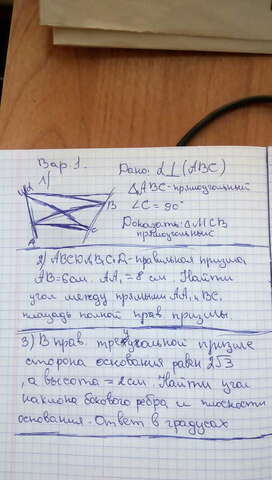 Вар 1.
Дано: α⊥(ABC)
1)
△ABC - прямоугольный
∠C = 90°
B
Доказать: △MCB
C
прямоугольный
A
AB = 6см. AA₁ = 8 см. Найти
угол между прямыми AA₁ и BC,
площадь полной прав. призмы
3) В прав. треугольной призме
сторона основания равен 2√3
, а высота = 2см. Найти угол
наклона бокового ребра и плоскости
основания. Ответ в градусах